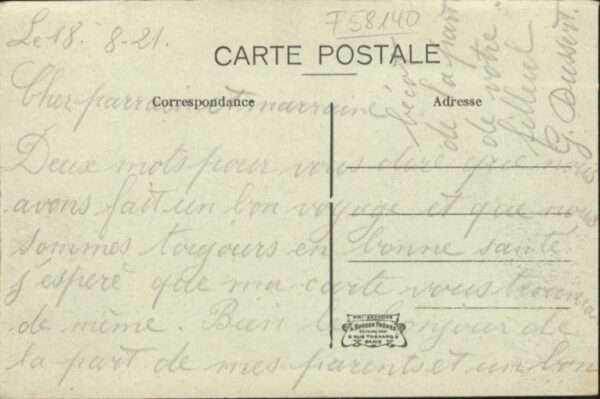 Le 18. 8-21.
F58140
CARTE POSTALE
Correspondance
Adresse
Cher parrain et marraine
Deux mots pour vous dire que nous
avons fait un bon voyage et que nous
sommes toujours en bonne santé
j'espere que ma carte vous trouvera
de même. Bien le bonjour de
la part de mes parents et un bon
bécot
de la part
de votre
filleul
G. Dussert.
PARIS